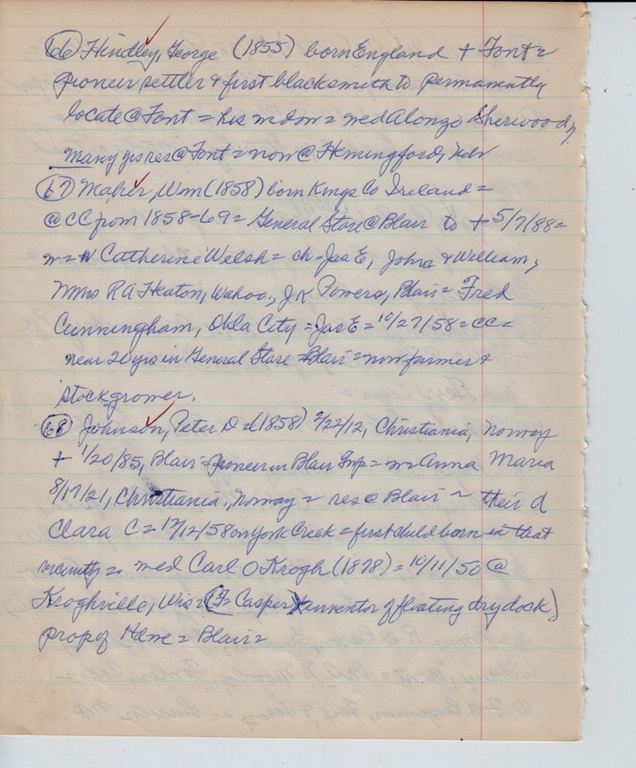 66 Hindley, George (1855) born England + Font =
pioneer settler & first blacksmith to permanently
locate @ Font = his widow = med Alonzo Sherwood,
many yrs res @ Font = now @ Hemingford, Nebr
67 Maher, Wm (1858) born Kings Co Ireland =
@ CC from 1858-69 = General Store @ Blair to + 5/7/88 =
m = Catherine Welsh = ch = Jas E, John & William,
Mmes RA Heaton, Wahoo, J K Powers, Blair = Fred
Cunningham, Okla City = Jas E = 10/27/58 = CC =
near 20 yrs in General Store = Blair = now farmer &
stockgrower.
68 Johnson, Peter D = (1858) 2/22/12, Christiania, Norway
+ 1/20/85, Blair = pioneer in Blair Twp = m = Anna Maria
8/17/21, Christiania, Norway = res @ Blair = their d
Clara C = 12/12/58 on York Creek = first child born in that
vicinity = med Carl O Krogh (1878) = 10/11/50 @
Kroghville, Wis = (F = Casper inventor of floating dry dock)
prop of Hdwe = Blair =